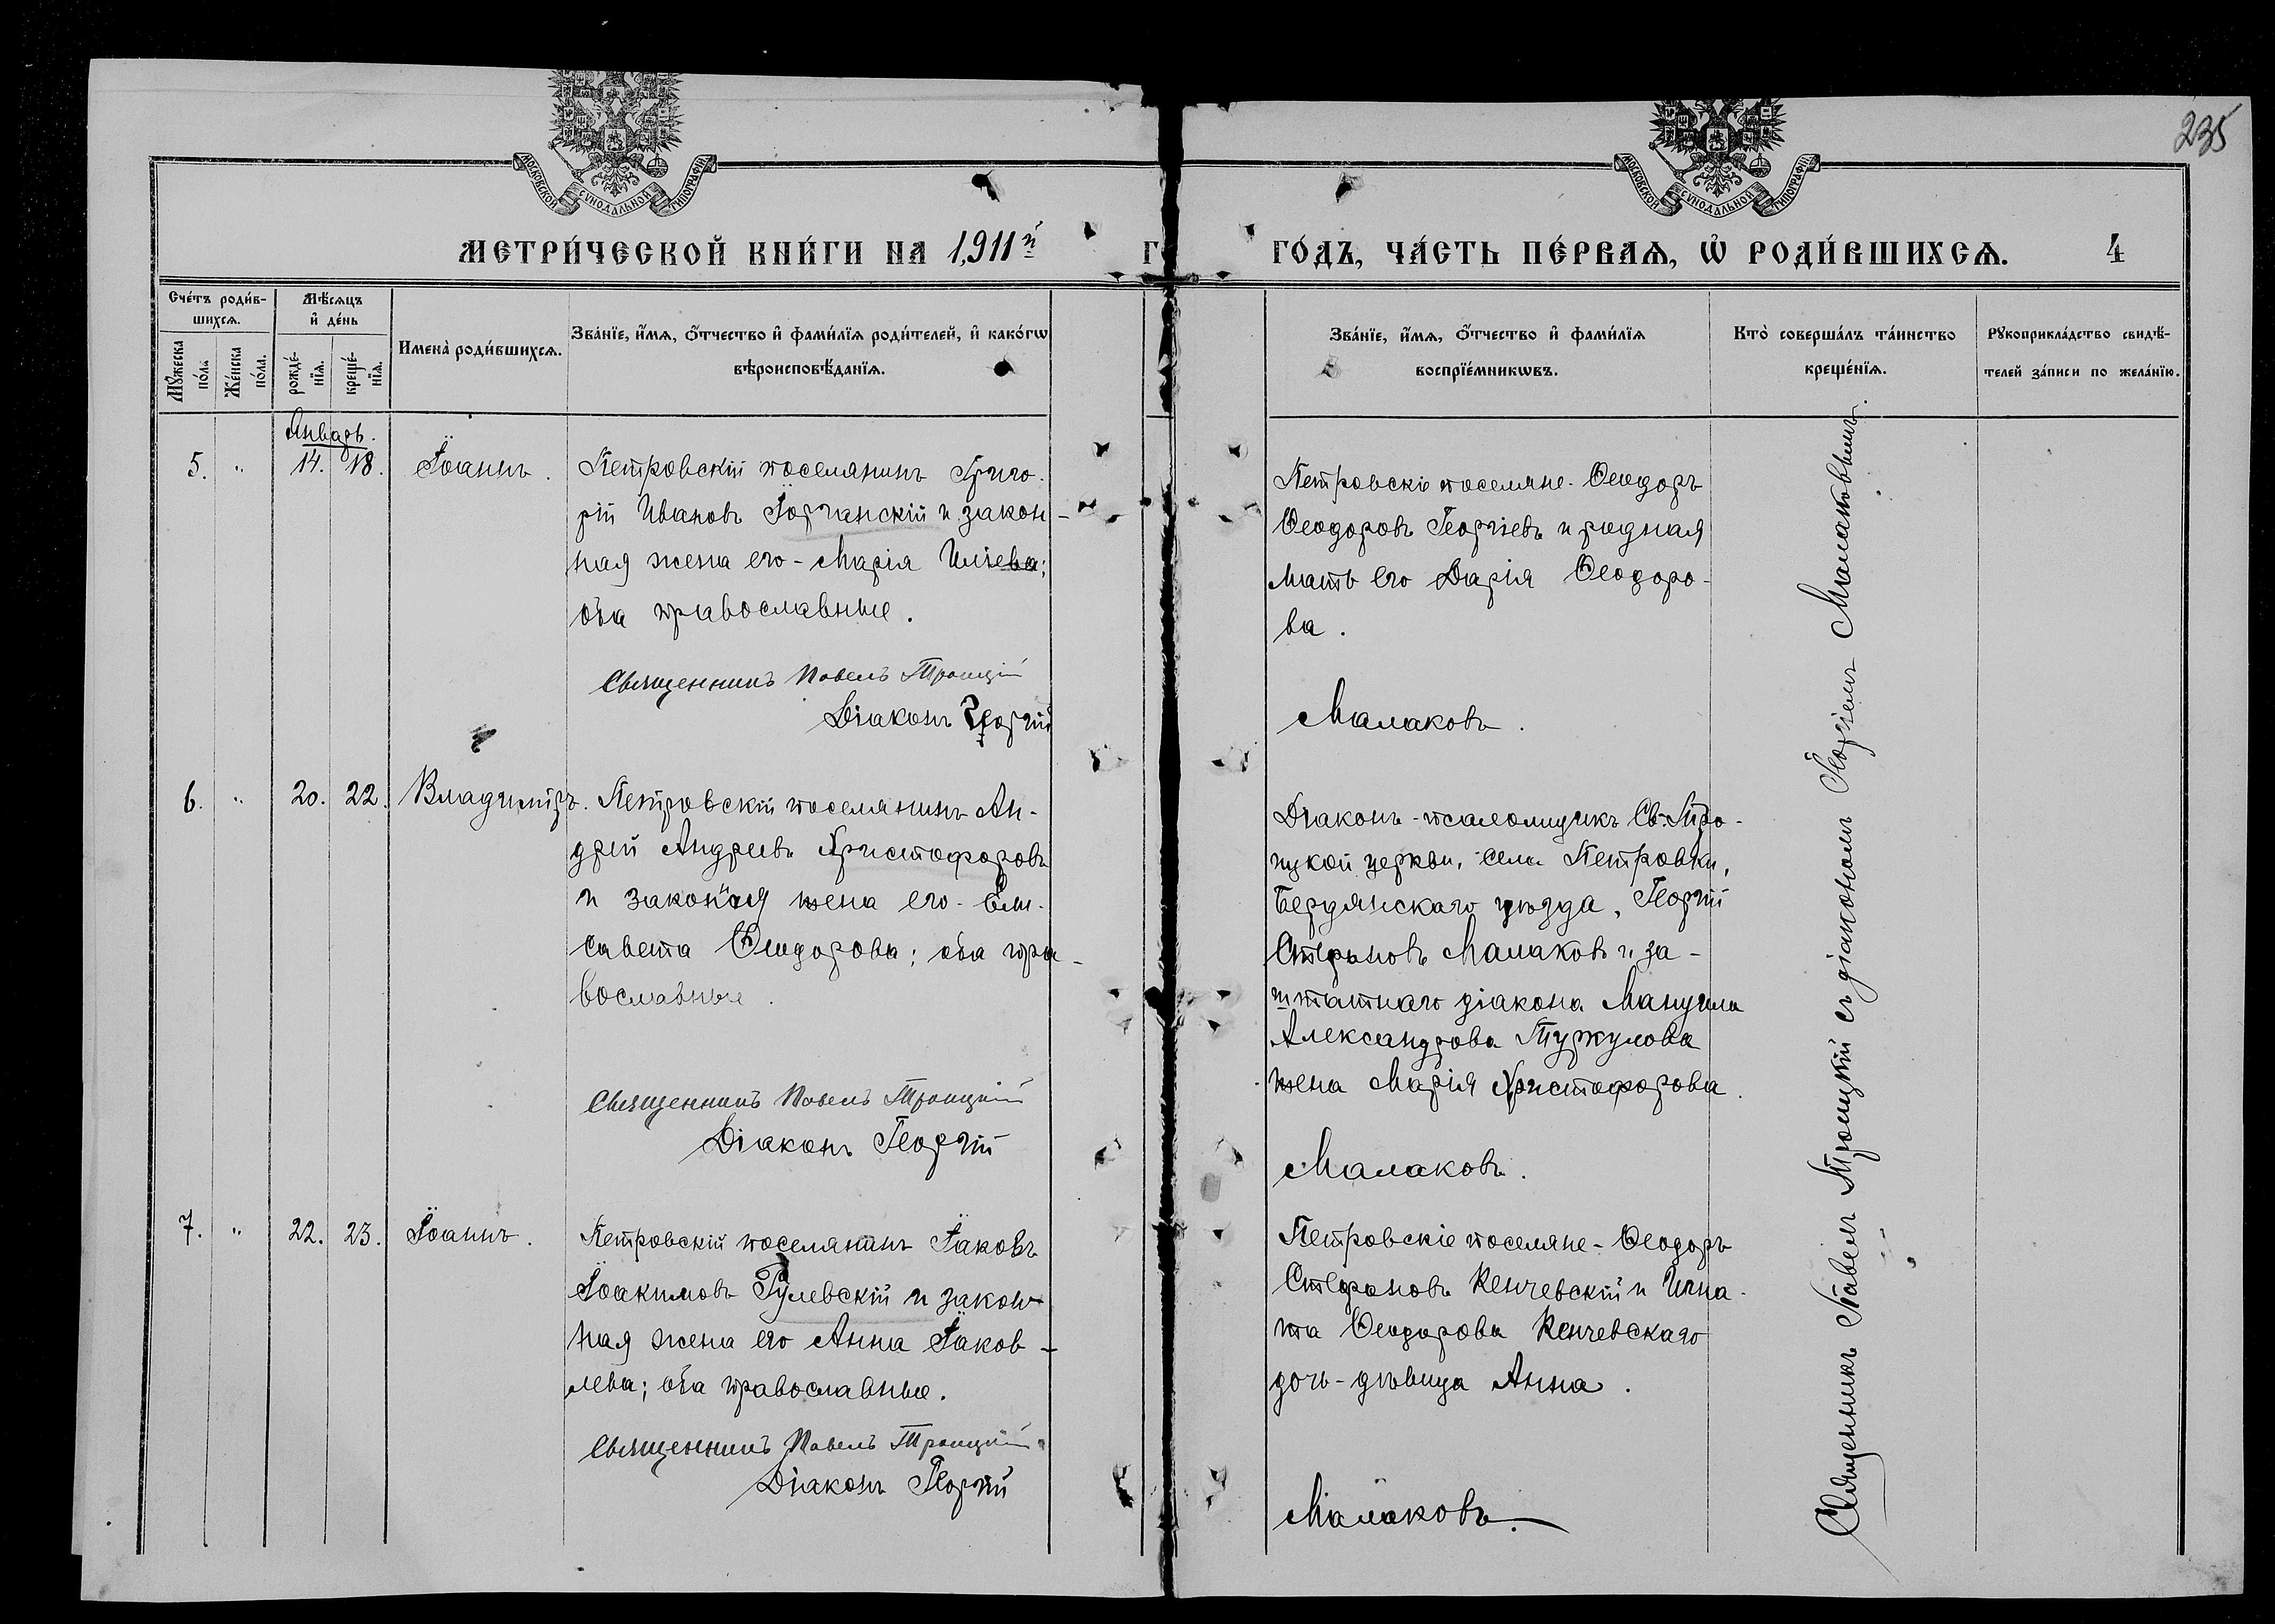 235
МОСКОВСКОЙ СУНОДАЛЬНОЙ ТИПОГРАФІИ
МОСКОВСКОЙ СУНОДАЛЬНОЙ ТИПОГРАФІИ
МЕТРИ́ЧЕСКОЙ КНИ́ГИ НА 1911й Г
ГО́ДЪ, ЧА́СТЬ ПЕ́РВАѦ, Ѡ҆ РОДИ́ВШИХСѦ. 4
Сче́тъ роди́в-
шихсѧ.
Мꙋ́жеска по́лꙋ.
Же́нска по́ла.
Мѣ́сѧцъ
и҆ де́нь
рожде́-
нїѧ.
креще́-
нїѧ.
Имена̀ роди́вшихсѧ.
Зва́нїе, и҆́мѧ, ѻ҆́тчество и҆ фами́лїѧ роди́телей, и҆ како́гѡ
вѣроисповѣ́данїѧ.
Зва́нїе, и҆́мѧ, ѻ҆́тчество и҆ фами́лїѧ
воспрїе́мникѡвъ.
Кто̀ соверша́лъ та́инство
креще́нїѧ.
Рꙋкоприкла́дство свидѣ́-
телей за́писи по жела́нїю.
Январь.
5. " 14. 18. Іоаннъ.
Петровскій поселянинъ Григо-
рій Ивановъ Іорганскій и закон-
ная жена его - Марія Иліева;
оба православные.
Священникъ Павелъ Троицкій
Діаконъ Георгій
Петровскіе поселяне - Ѳеодоръ
Ѳеодоровъ Георгіевъ и родная
мать его Дарія Ѳеодоро-
ва.
Малаковъ.
6. " 20. 22. Владиміръ.
Петровскій поселянинъ Ан-
дрей Андреевъ Христофоровъ
и законная жена его - Ели-
савета Ѳеодорова; оба пра-
вославные.
Священникъ Павелъ Троицкій
Діаконъ Георгій
Діаконъ - псаломщикъ Св.-Тро-
ицкой церкви, села Петровки,
Бердянскаго уѣзда, Георгій
Стефановъ Малаковъ и за-
штатнаго діакона Мануила
Александрова Туркулова
жена Марія Христофорова.
Малаковъ.
7. " 22. 23. Іоаннъ.
Петровскій поселянинъ Іаковъ
Іоакимовъ Гулевскій и закон-
ная жена его Анна Іаков-
лева; оба православные.
Священникъ Павелъ Троицкій
Діаконъ Георгій
Петровскіе поселяне - Ѳеодоръ
Стефановъ Кенчевскій и Игна-
та Ѳеодорова Кенчевскаго
дочь - дѣвица Анна.
Малаковъ.
Священникъ Павелъ Троицкій съ діакономъ Георгіемъ Малаковымъ.